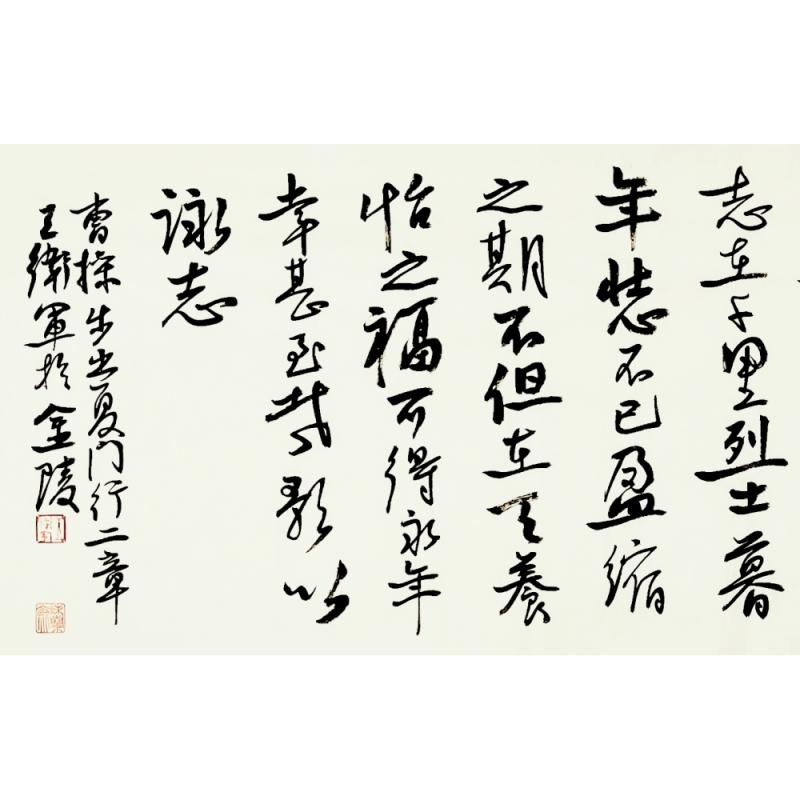 志在千里烈士暮
年壮心不已盈缩
之期不但在天養
怡之福可得永年
幸甚至哉歌以
詠志
曹操步出夏门行二章
王衛軍於金陵